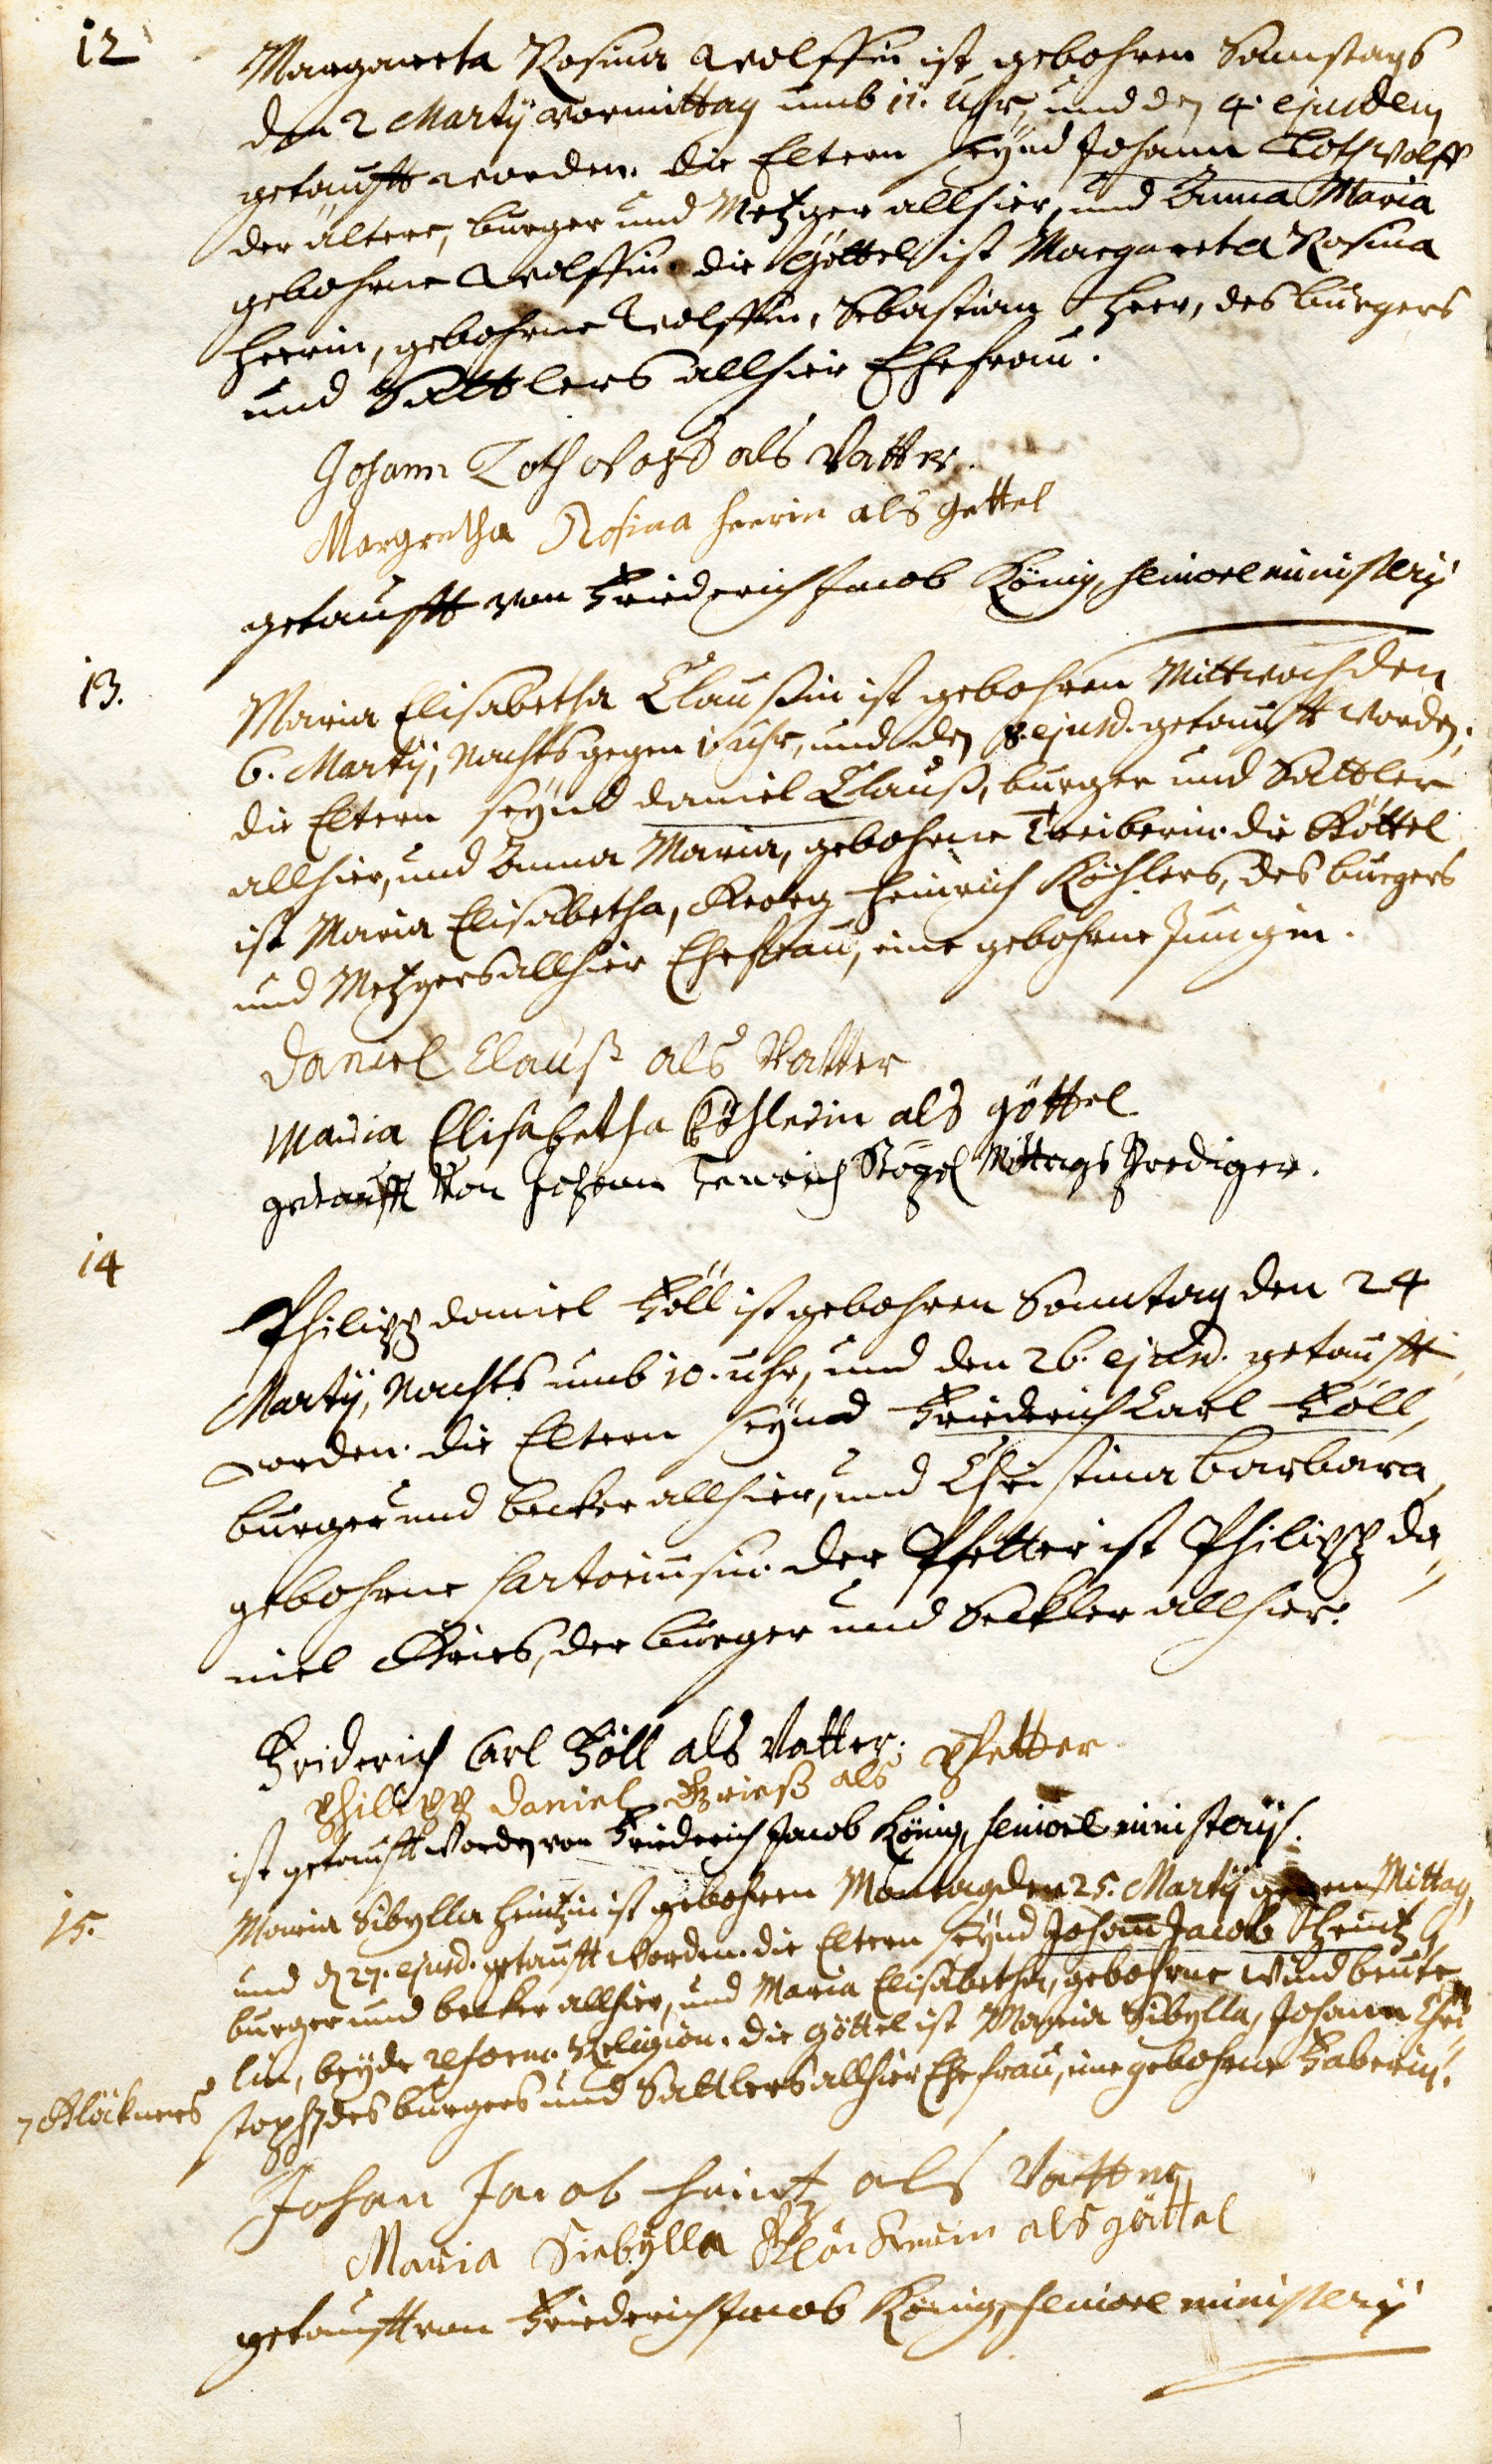 12
Margareta Rosina Wolffin ist gebohren Samstags
den 2 Martÿ Vormittag umb 11. Uhr, und den 4. ejusdem
getaufft worden. die Eltern seÿnd Johann Loth Wolff
der ältere, burger und Metzger allhier, und Anna Maria
gebohrne Wolffin. die Göttel ist Margareta Rosina
Heerin, gebohrne Wolffin, Sebastian Heer, des burgers
und Sattlers allhier Ehefrau.
Johann Loth als Vatter.
Margretha Rosina Heerin als gettel
getaufft von Friederich Jacob König, seniore ministerÿ
13.
Maria Elisabetha Claußin ist gebohren Mittwoch den
6. Martÿ, Nachts gegen 1 uhr, und den 8. ejusd. getaufft worden.
die Eltern seÿnd daniel Clauß, burger und Sattler
allhier, und Anna Maria, gebohrne Treiberin. die Göttel
ist Maria Elisabetha, Georg Heinrich Köhlers, des burgers
und Metzgers allhier Ehefrau, eine gebohrne Jungin.
Daniel Clauß als Vatter
Maria Elisabetha Köhlerin als göttel
getaufft Von Johann Henrich Mittags Prediger.
14
Philipp daniel Föll ist gebohren Sonntag den 24
Martÿ, Nachts umb 10. uhr, und den 26. ejusd. getaufft
worden. die Eltern seÿnd Friederich Carl Föll,
burger und becker allhier, und Christina barbara,
gebohrne Sartoriussin. der Pfetter ist Philipp da,,
niel Gries, der burger und Seckler allhier.
Friderich Carl Föll als Vatter.
Philipp Daniel Grieß als Pfetter
ist getaufft worden von Friederich Jacob König, seniore ministerÿ.
15.
Maria Sibylla Heintzin ist gebohren Montag den 25. Martÿ gegen Mittag,
und d. 27. ejusd. getaufft worden. die Eltern seÿnd Johann Jacob Heintz,
burger und becker allhier, und Maria Elisabetha, gebohrne Windbeute,,
lin, beÿde reform. Religion. die Göttel ist Maria Sibylla, Johann Chri,,
stoph, des burgers und Sattlers allhier Ehefrau, eine gebohrne Faberin.
Glöckners
Johan Jacob Heintz als Vatter
Maria Siebÿlla Glöcknerin als göttel
getaufft von Friederich Jacob König, seniore ministerÿ